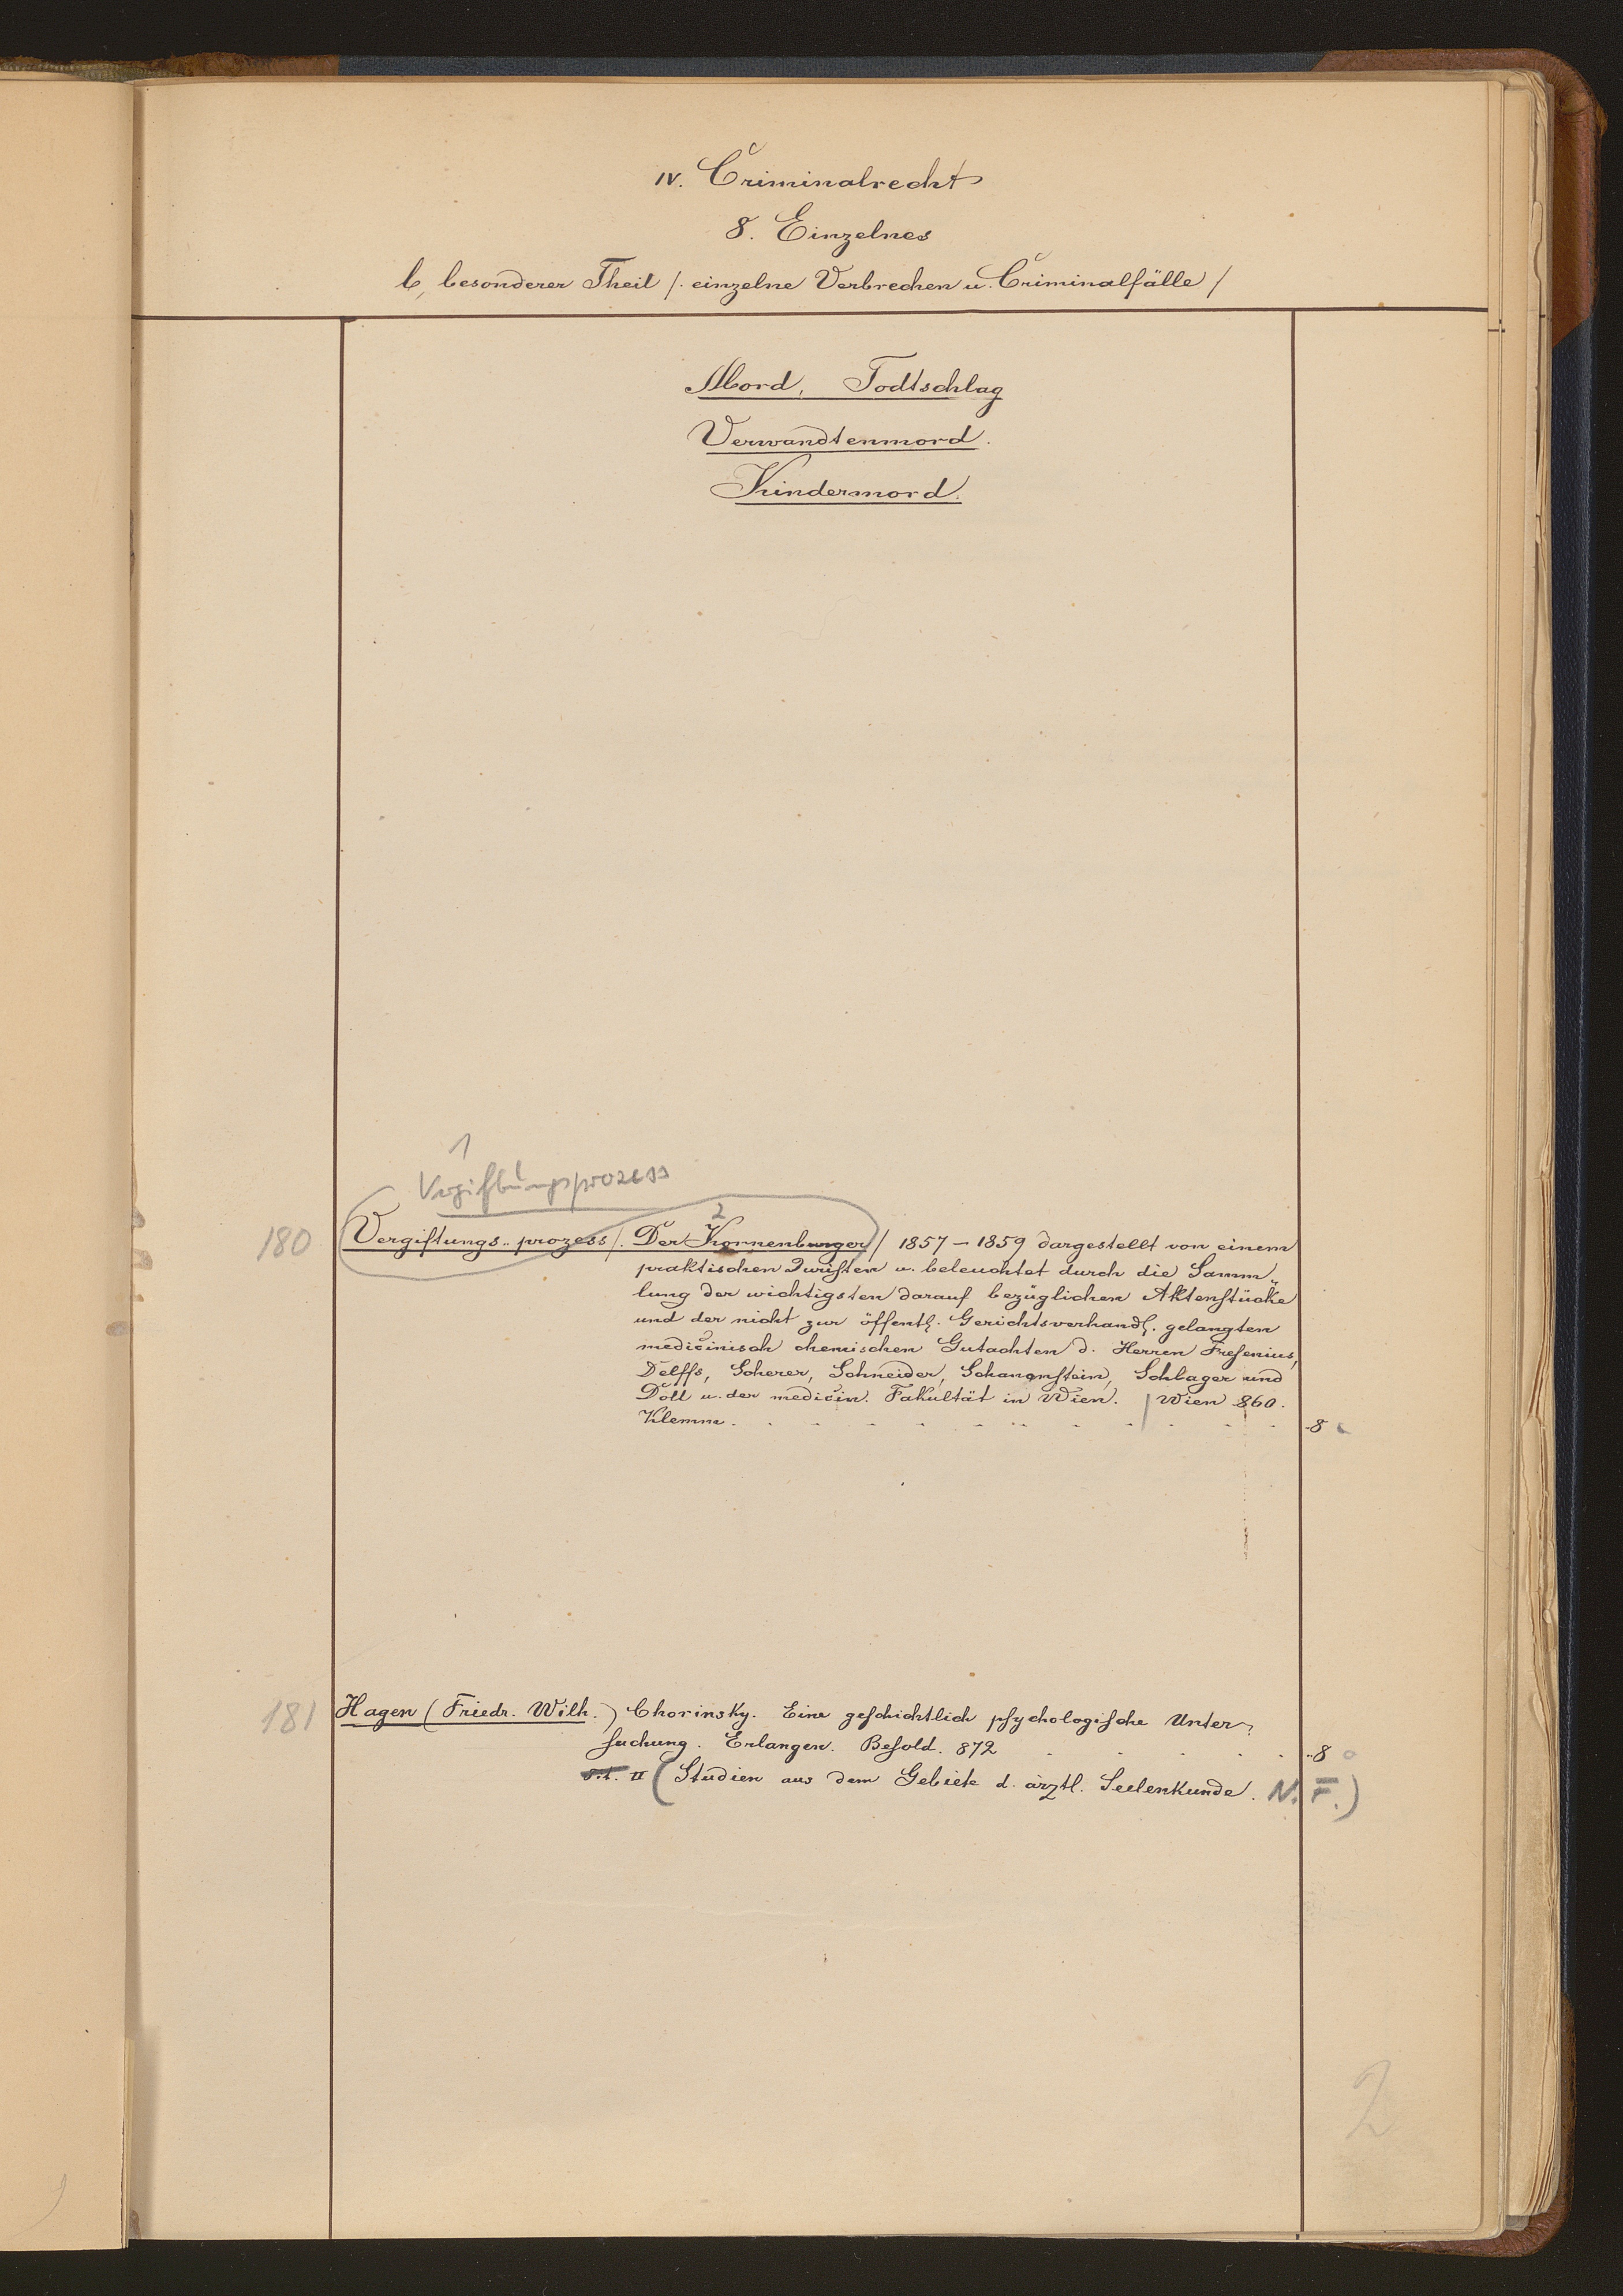 IV. Criminalrecht
8. Einzelnes
b, besonderer Theil /. einzelne Verbrechen u. Criminalfälle /
Mord, Todtschlag
Verwandtenmord.
Kindermord.
1
Vergiftungsprozess
2
180 Vergiftungs-prozess /. Der Kornenburger / 1857-1859 dargestellt von einem
praktischen Juristen u. beleuchtet durch die Samm-
lung der wichtigsten darauf bezüglichen Aktenstücke
und der nicht zur öffentl. Gerichtsverhandl. gelangten
medicinisch chemischen Gutachten d. Herren Fresenius,
Delffs, Scherer, Schneider, Schauenstein, Schlager und
Doll u. der medicin. Fakultät in Wien. / Wien 860.
Klemm. . . . . . . . . . . . . 8
181 Hagen (Friedr. Wilh.) Chorinsky. Eine geschichtlich psychologische Unter-
suchung. Erlangen. Besold. 872 . . . . . 8
s.t. II (Studien aus dem Gebiete d. ärztl. Seelenkunde. N. F.)
2